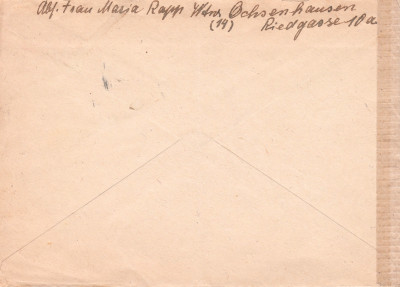 Abs. Frau Maria Rapp Ochsenhausen
(14) Riedgasse 10a